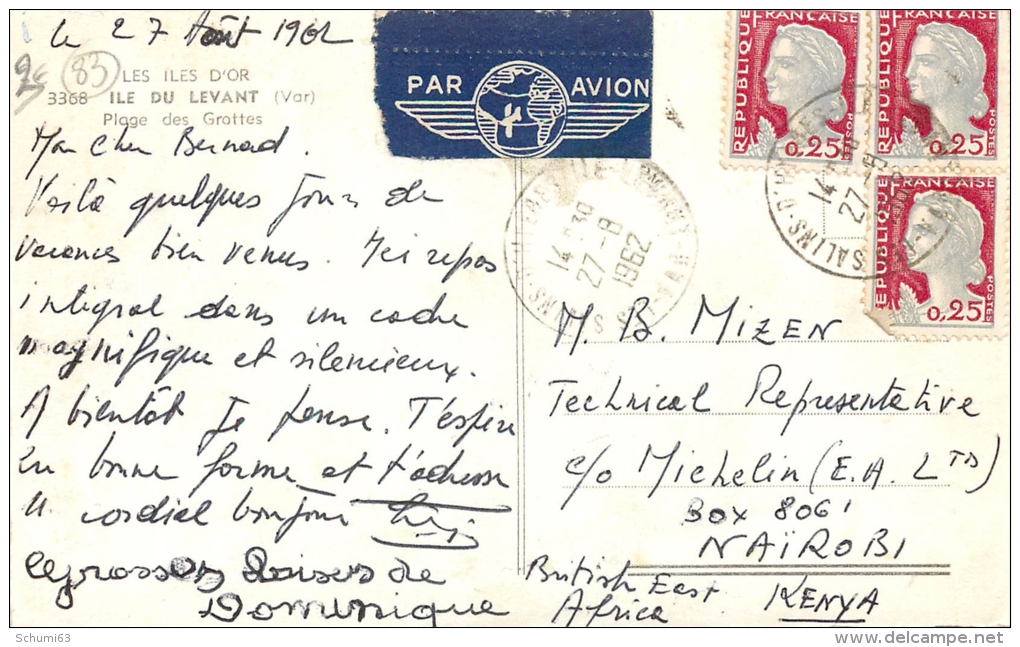 le 27 Août 1962
83
LES ILES D'OR
3368 ILE DU LEVANT (Var)
Plage des Grottes
Mon Cher Bernard.
Voilà quelques jours de
vacances bien venus. Ici repos
intégral dans un cadre
magnifique et silencieux.
A bientôt je pense. T'espère
en bonne forme et t'adresse
un cordial bonjour
grosses baises de
Dominique
PAR AVION
REPUBLIQUE FRANÇAISE
0,25 POSTES
REPUBLIQUE FRANÇAISE
0,25 POSTES
REPUBLIQUE FRANÇAISE
0,25 POSTES
14 H 30
27-8
1962
VAR
SALINS-D'HYERES
14 H 30
27-8
M. B. MIZEN
Technical Representative
c/o Michelin (E.A. LTD)
BOX 8061
NAIROBI
British East
Africa
KENYA
Schumi63
delcampe.net